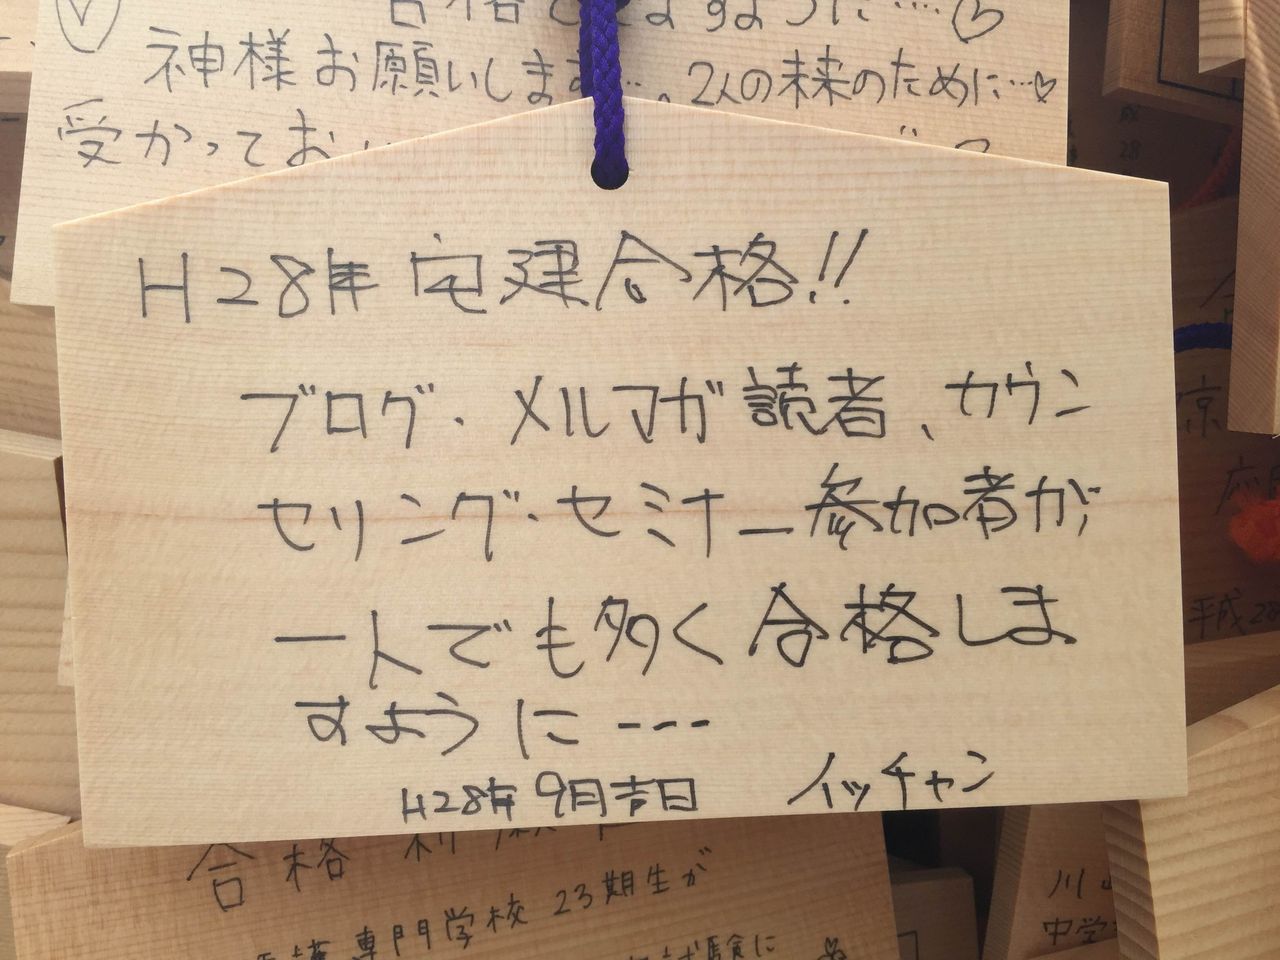 神様お願いします…。2人の未来のために…♡
受かってお
H28年 宅建合格!!
ブログ・メルマガ読者、カウン
セリング・セミナー参加者が
一人でも多く合格しま
すように---
H28年9月吉日 イッチャン
合格
専門学校 23期生が
試験に
平成28
中学